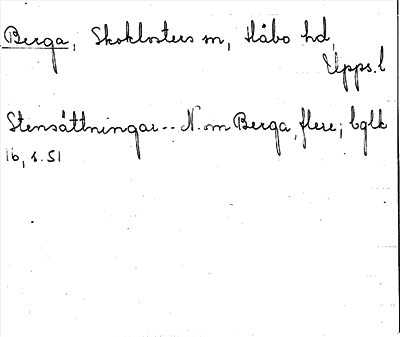 Berga, Skoklosters sn, Håbo hd,
Upps. l
Stensättningar -- N. om Berga, flere; bglk
16, s. 51